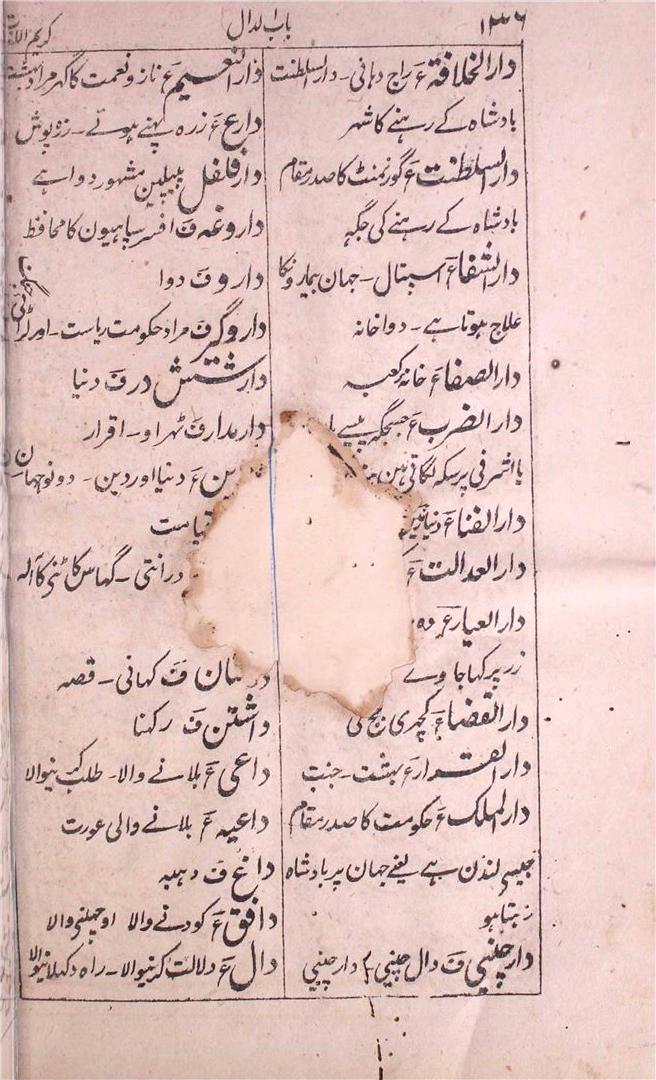 ۱۳۶ باب الدال کریم اللغات
دارالخلافۃ ع راج دہانی۔ دارالسلطنت
بادشاہ کے رہنے کا شہر
دارالسلطنت ع گورنمنٹ کا صدر مقام
بادشاہ کے رہنے کی جگہ
دارالشفاء ع اسپتال۔ جہان بیمارونکا
علاج ہوتا ہے۔ دواخانہ
دارالصفاء ع خانہ کعبہ
دارالضرب ع جسجگہ پیسے
یا اشرفی پر سکہ لگاتی ہین
دارالفناء ع دنیا
دارالعدالت ع
دارالعیار ع وہ
زر پرکہا جاوے
دارالقضاء ع کچہری جج کی
دارالقرار ع بہشت۔ جنت
دارالملک ع حکومت کا صدر مقام
جیسے لندن ہے یعنے جہان پر بادشاہ
رہتا ہو
دارچینی ف دال چینی
دارالنعیم ع ناز و نعمت کا گہر مراد بہشت
دارع ع زرہ پہنے ہوئے۔ زرہ پوش
دارفلفل پیپلین مشہور دوا ہے
داروغہ ف افسر سپاہیون کا محافظ
دارو ف دوا
داروگیر ف مراد حکومت ریاست۔ اور لڑائی جنگ
دارشش در ف دنیا
دارمدار ف ٹہراو۔ اقرار
ین ع دنیا اور دین۔ دونو جہان
درانتی۔ گہاس کاٹنے کا آلہ
ف کہانی۔ قصہ
داشتن ف رکہنا
داعی ع بلانے والا۔ طلب کرنیوالا
داعیہ ع بلانے والی عورت
داغ ف دہبہ
دافق ع کودنے والا اوچہلنے والا
دال ع دلالت کرنیوالا۔ راہ دکہلانیوالا